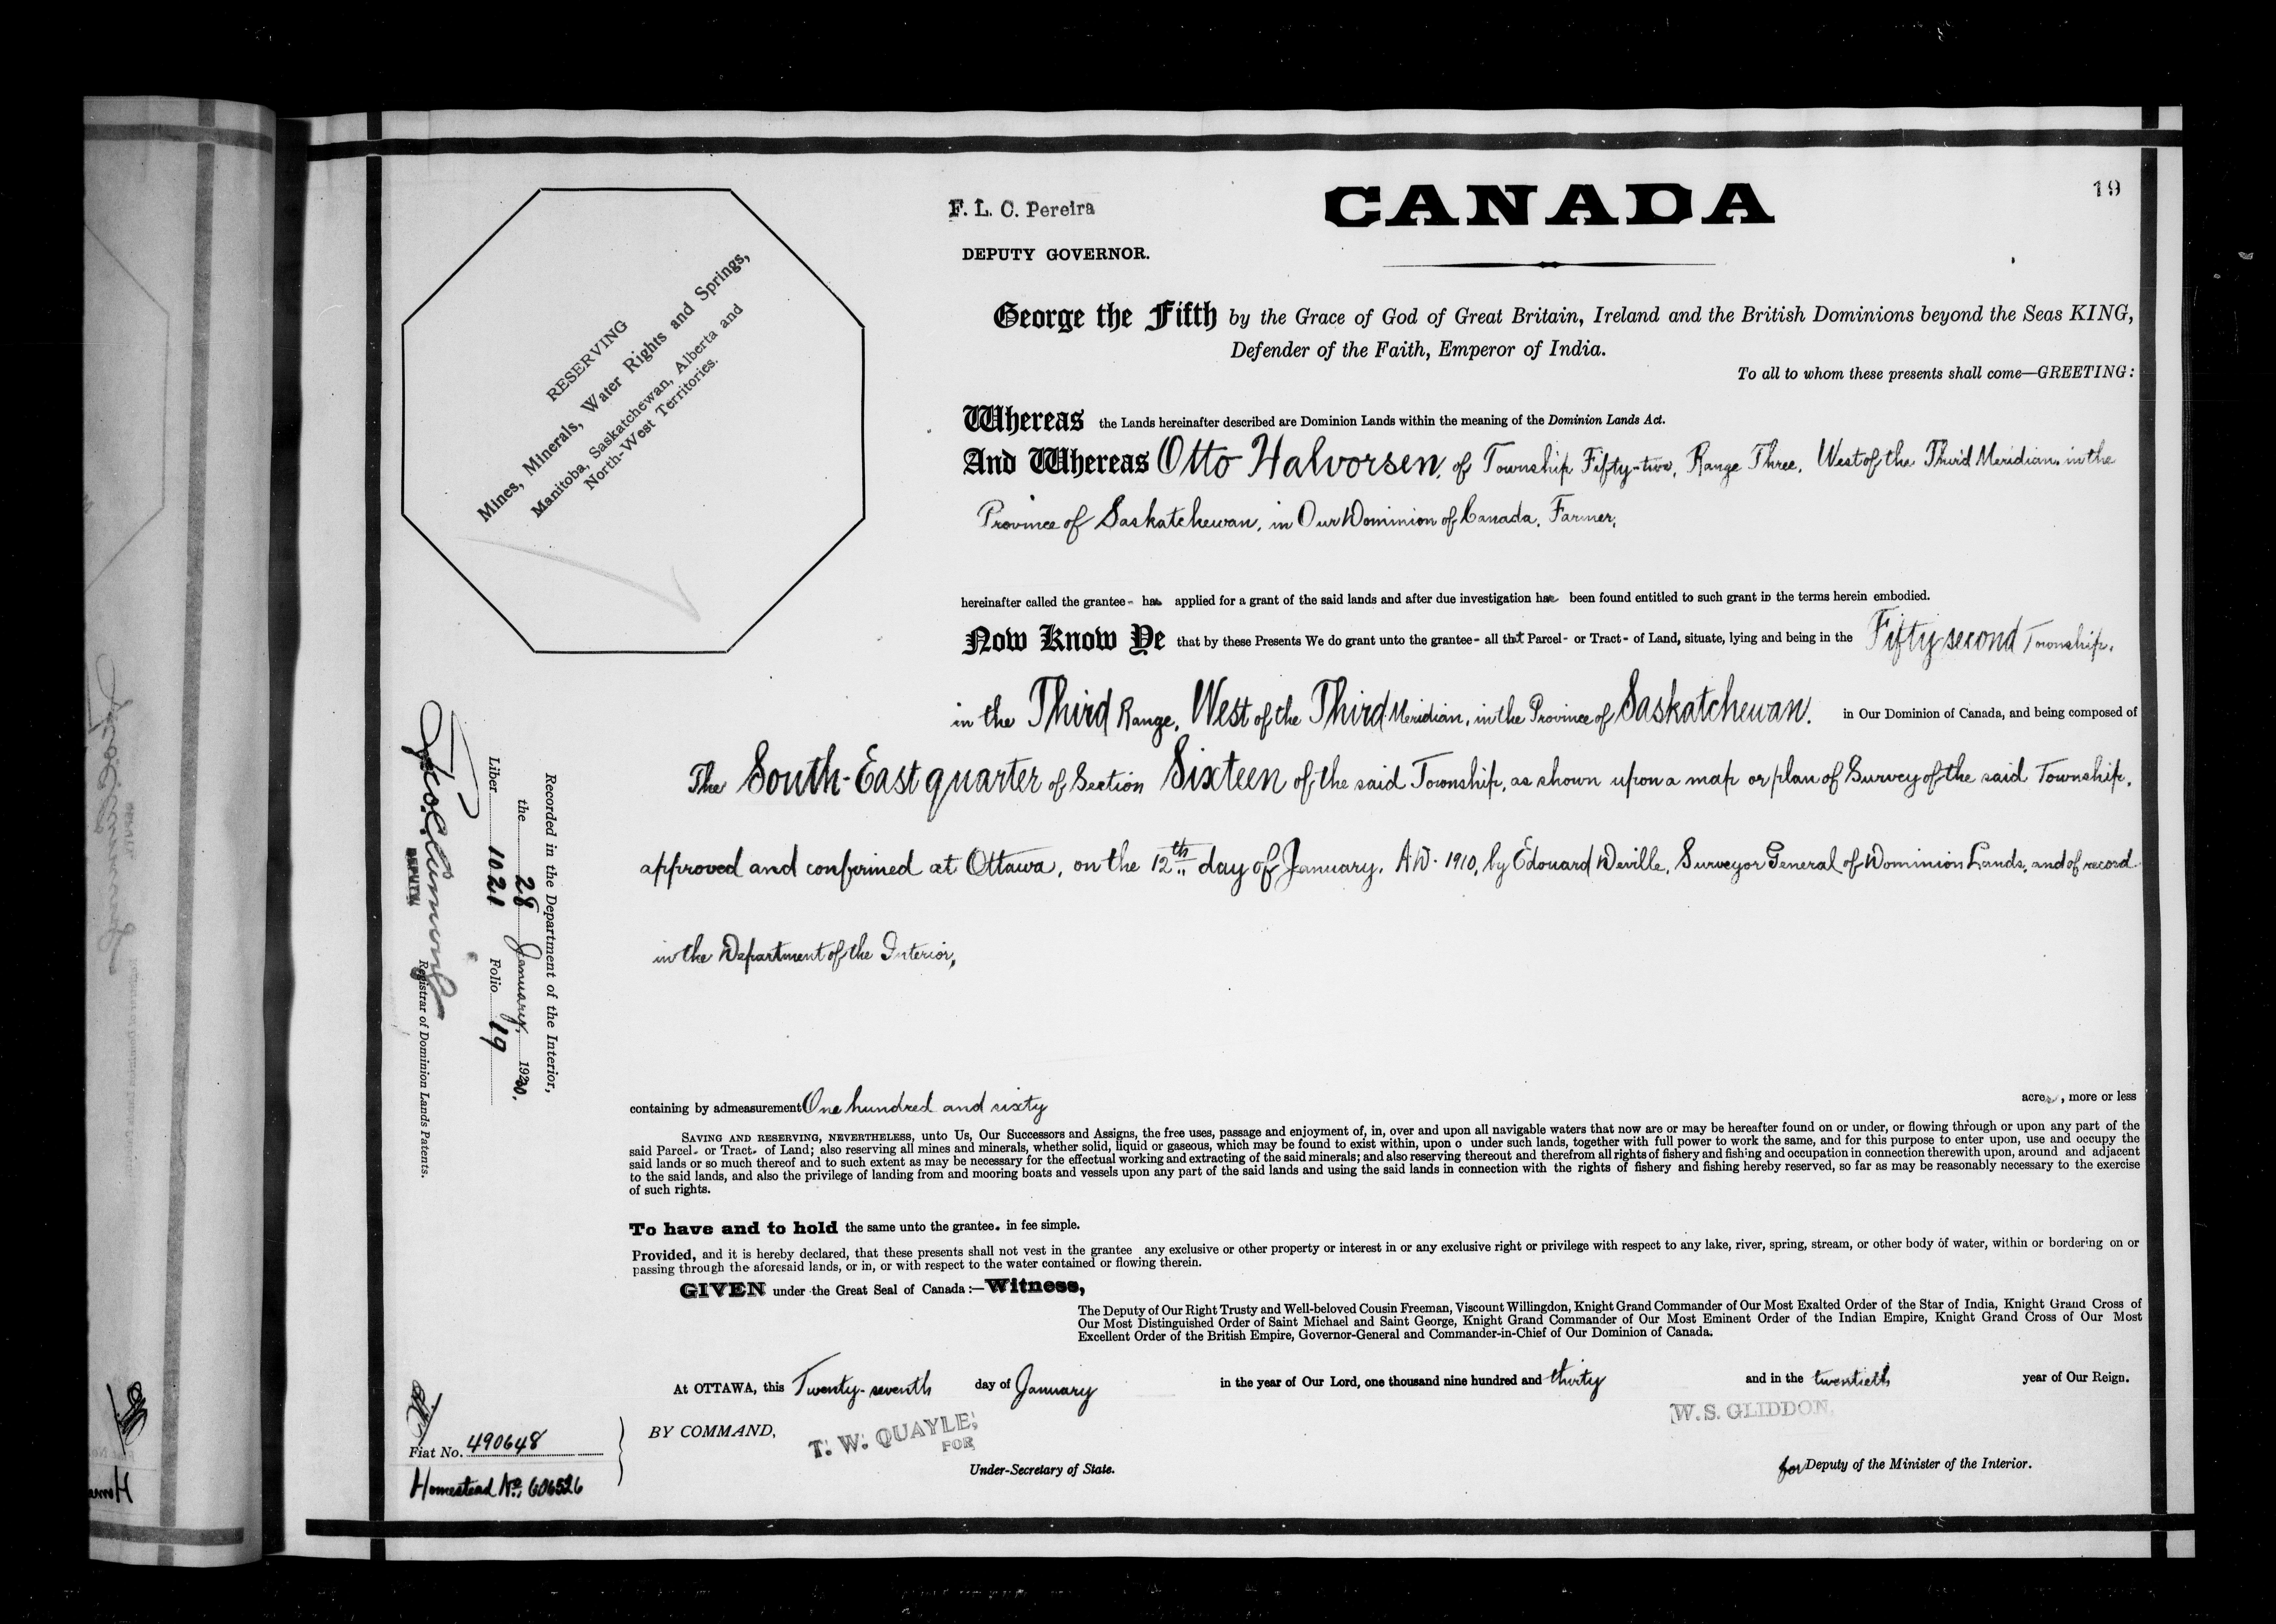 19
F. L. C. Pereira
CANADA
DEPUTY GOVERNOR.
RESERVING
Mines, Minerals, Water Rights and Springs,
Manitoba, Saskatchewan, Alberta and
North-West Territories.
George the Fifth by the Grace of God of Great Britain, Ireland and the British Dominions beyond the Seas KING,
Defender of the Faith, Emperor of India.
To all to whom these presents shall come—GREETING:
Whereas the Lands hereinafter described are Dominion Lands within the meaning of the Dominion Lands Act.
And Whereas Otto Halvorsen, of Township Fifty-two, Range Three, West of the Third Meridian, in the
Province of Saskatchewan, in Our Dominion of Canada, Farmer,
hereinafter called the grantee- has applied for a grant of the said lands and after due investigation has been found entitled to such grant in the terms herein embodied.
Now Know Ye that by these Presents We do grant unto the grantee- all that Parcel- or Tract- of Land, situate, lying and being in the Fifty second Township,
in the Third Range, West of the Third Meridian, in the Province of Saskatchewan. in Our Dominion of Canada, and being composed of
The South-East quarter of Section Sixteen of the said Township, as shown upon a map or plan of Survey of the said Township,
approved and confirmed at Ottawa, on the 12th day of January, A.D. 1910, by Edouard Deville, Surveyor General of Dominion Lands, and of record
in the Department of the Interior,
containing by admeasurement One hundred and sixty acres, more or less
SAVING AND RESERVING, NEVERTHELESS, unto Us, Our Successors and Assigns, the free uses, passage and enjoyment of, in, over and upon all navigable waters that now are or may be hereafter found on or under, or flowing through or upon any part of the
said Parcel- or Tract- of Land; also reserving all mines and minerals, whether solid, liquid or gaseous, which may be found to exist within, upon o under such lands, together with full power to work the same, and for this purpose to enter upon, use and occupy the
said lands or so much thereof and to such extent as may be necessary for the effectual working and extracting of the said minerals; and also reserving thereout and therefrom all rights of fishery and fishing and occupation in connection therewith upon, around and adjacent
to the said lands, and also the privilege of landing from and mooring boats and vessels upon any part of the said lands and using the said lands in connection with the rights of fishery and fishing hereby reserved, so far as may be reasonably necessary to the exercise
of such rights.
To have and to hold the same unto the grantee. in fee simple.
Provided, and it is hereby declared, that these presents shall not vest in the grantee any exclusive or other property or interest in or any exclusive right or privilege with respect to any lake, river, spring, stream, or other body of water, within or bordering on or
passing through the aforesaid lands, or in, or with respect to the water contained or flowing therein.
GIVEN under the Great Seal of Canada:—Witness,
The Deputy of Our Right Trusty and Well-beloved Cousin Freeman, Viscount Willingdon, Knight Grand Commander of Our Most Exalted Order of the Star of India, Knight Grand Cross of
Our Most Distinguished Order of Saint Michael and Saint George, Knight Grand Commander of Our Most Eminent Order of the Indian Empire, Knight Grand Cross of Our Most
Excellent Order of the British Empire, Governor-General and Commander-in-Chief of Our Dominion of Canada.
At OTTAWA, this Twenty-seventh day of January in the year of Our Lord, one thousand nine hundred and thirty and in the twentieth year of Our Reign.
BY COMMAND,
T. W. QUAYLE,
FOR
Under-Secretary of State.
W. S. GLIDDON,
for Deputy of the Minister of the Interior.
Recorded in the Department of the Interior,
the 28 January, 1930.
Liber 1021 Folio 19
DEPUTY
Registrar of Dominion Lands Patents.
Fiat No. 490648
Homestead No. 606526